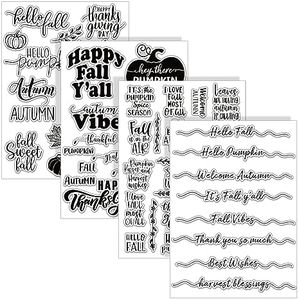 hello fall
HAPPY
Thanks
giving
DAY
HELLO
Pumpkin
Autumn
AUTUMN
fall
Sweet
fall
Happy
Fall
Y'all
autumn
Vibes
thankful
PUMPKIN
FALL
Autumn
HAPPY
Thanksgiving
hey there
PUMPKIN
IT'S THE
PUMPKIN
Spice
SEASON
FALL
is in the
AIR
I LOVE
FALL
MOST
OF ALL
Welcome
Autumn
Leaves
are falling
autumn
is calling
Pumpkin
kisses and
Harvest
wishes
I LOVE
FALL
MOST
OF ALL
HELLO
FALL
Hello Fall
Hello Pumpkin
Welcome Autumn
It's Fall y'all
Fall Vibes
Thank you so much
Best Wishes
harvest blessings